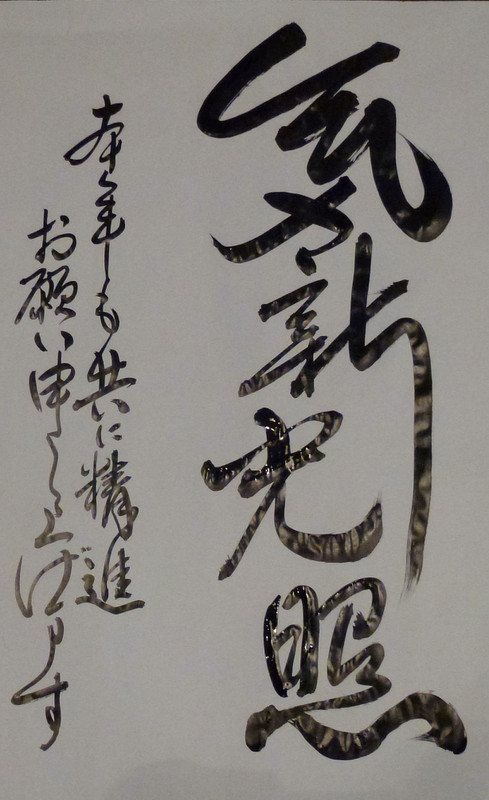 気新光照
本年も共に精進
お願い申し上げます